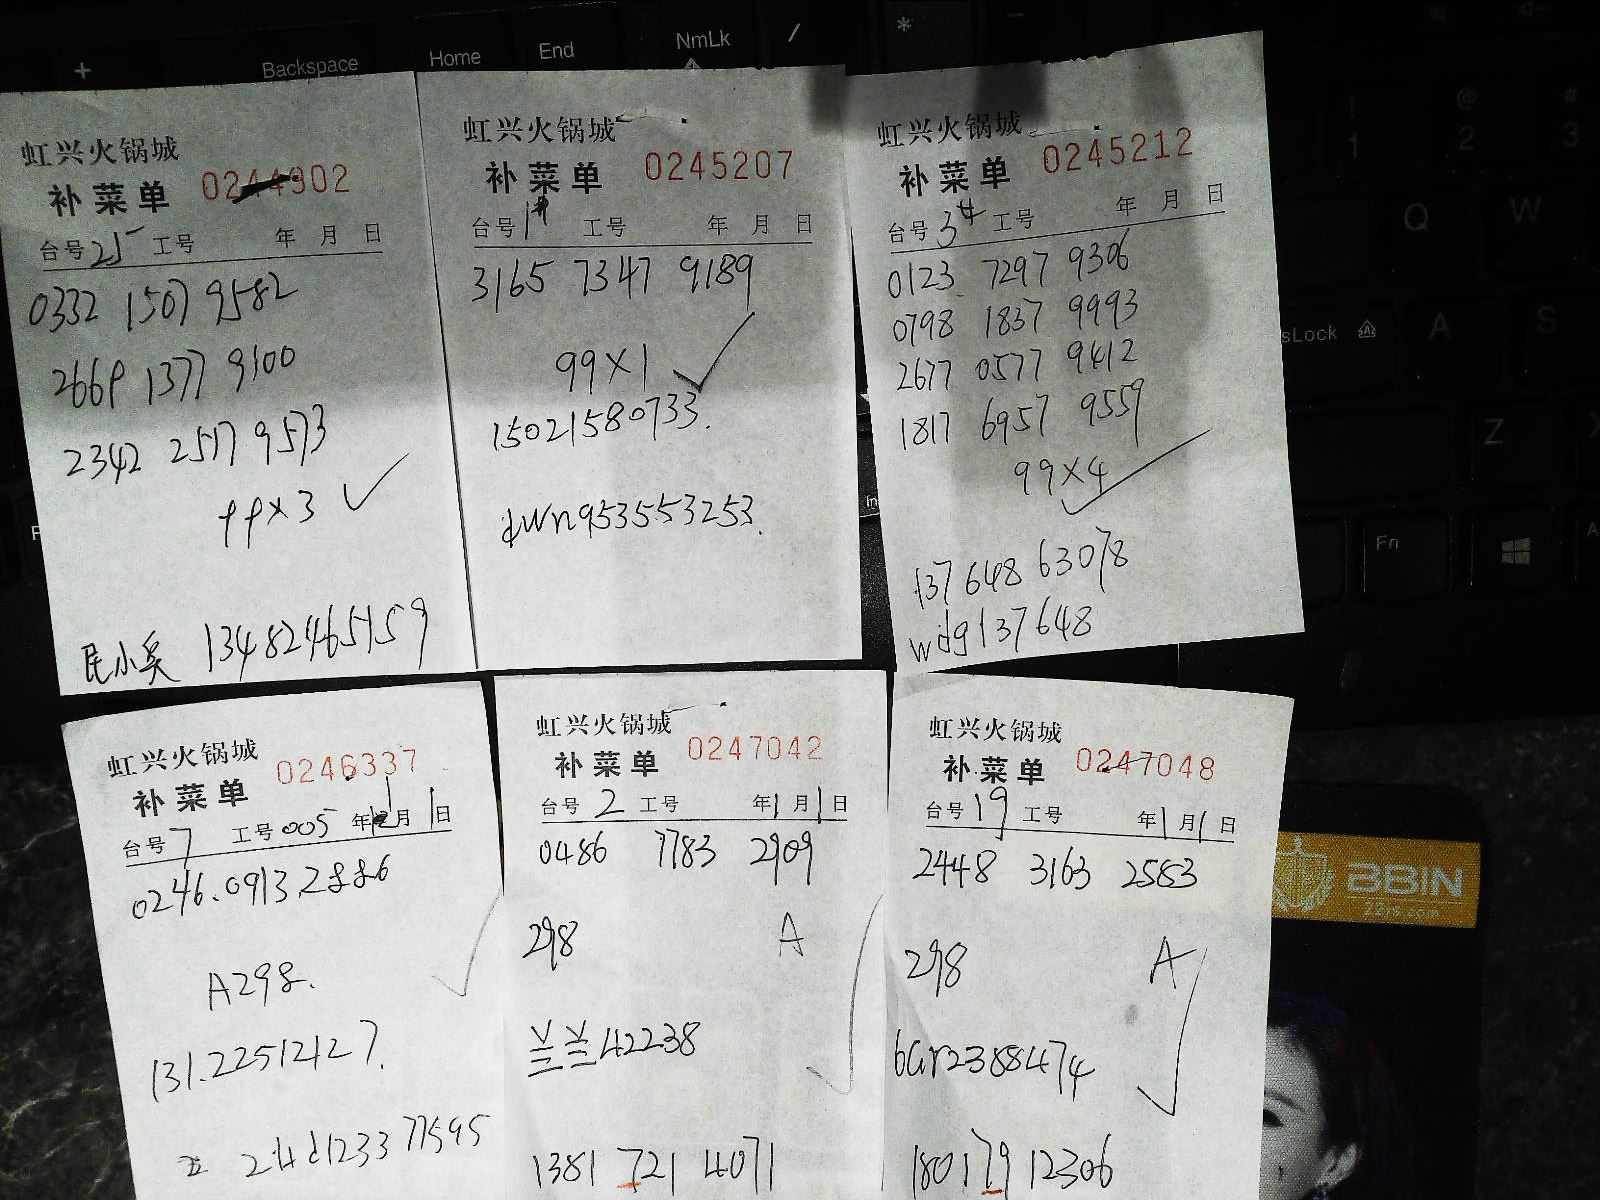 + Backspace Home End NmLk / * -
虹兴火锅城
补菜单 0244902
台号 25 工号 年 月 日
0332 1507 9582
2669 1377 9100
2342 2517 9573
99×3 ✓
民小奚 13482465159
虹兴火锅城
补菜单 0245207
台号 1# 工号 年 月 日
3165 7347 9189
99×1 ✓
15021580733.
dwn953553253.
虹兴火锅城
补菜单 0245212
台号 3# 工号 年 月 日
0123 7297 9306
0798 1837 9993
2677 0577 9412
1817 6957 9559
99×4 ✓
137648 63078
wdg137648
虹兴火锅城
补菜单 0246337
台号 7 工号 005 年 1月 1日
0246.0913.2886
A298. ✓
131.22512127.
虹兴火锅城
补菜单 0247042
台号 2 工号 年 1月 1日
0486 7783 2909
298 A ✓
兰兰42238
1381 721 4071
虹兴火锅城
补菜单 0247048
台号 19 工号 年 1月 1日
2448 3163 2583
298 A ✓
bar2388474
180179 12306
1 2 3
Q W
sLock A S
Z
Fn
BBIN
22yb.com